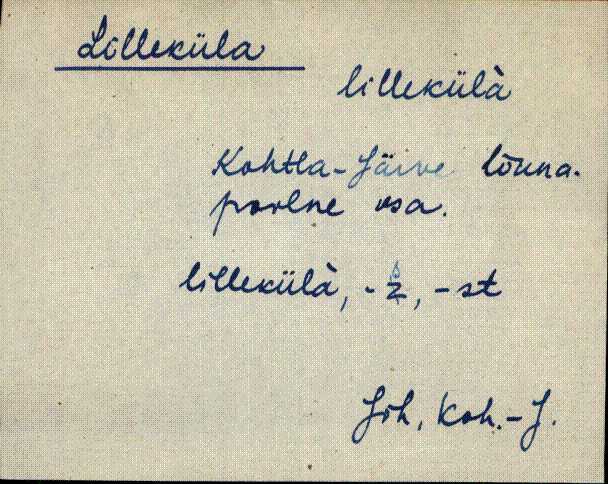 Lilleküla
lillekülà
Kohtla-Järve lõuna-
poolne osa.
lillekülà, -z, -st
Jõh, Koh.-J.